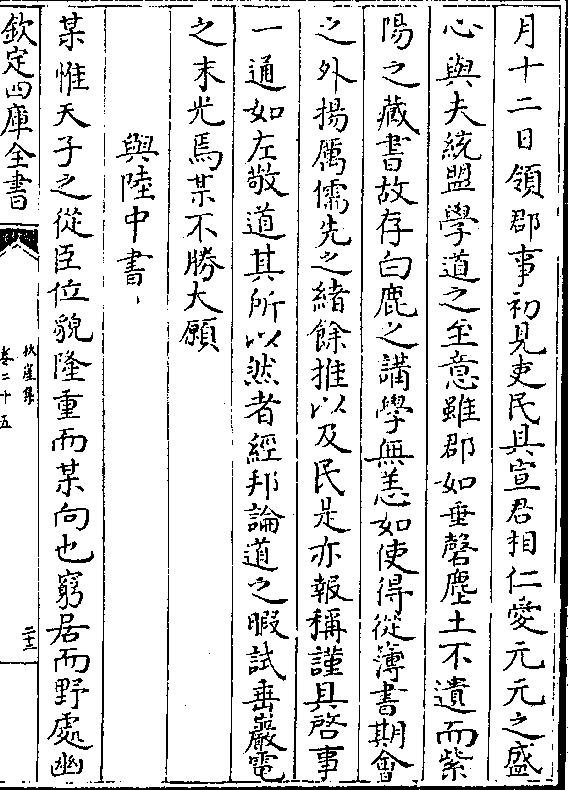 月十二日領郡事初見吏民具宣君相仁愛元元之盛
心與夫統盟學道之至意雖郡如垂磬塵土不遺而紫
陽之藏書故存白鹿之講學無恙如使得從簿書期會
之外揚厲儒先之緒餘推以及民是亦報稱謹具啓事
一通如左敬道其所以然者經邦論道之暇試垂嚴電
之末光焉某不勝大願
與陸中書
某惟天子之從臣位貌隆重而某向也窮居而野處幽
欽定四庫全書
秋崖集
卷二十五
二十三